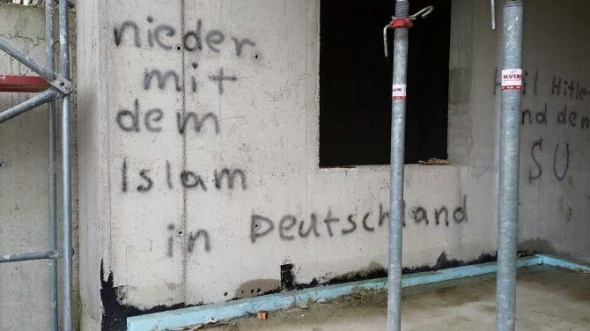 nieder
mit
dem
Islam
in Deutschland
il Hitle
nd dem
SU